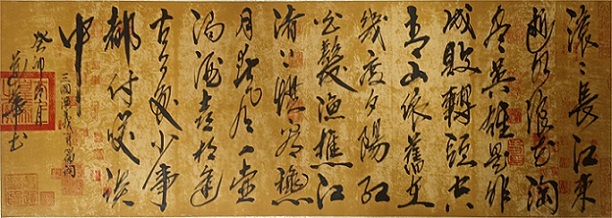 滚〻長江東
逝水浪花淘
尽英雄是非
成敗轉頭空
青山依舊在
幾度夕陽紅
白髮漁樵江
渚上慣看秋
月春風一壺
濁酒喜相逢
古今多少事
都付笑談
中
三國演義開篇詞
癸卯
书